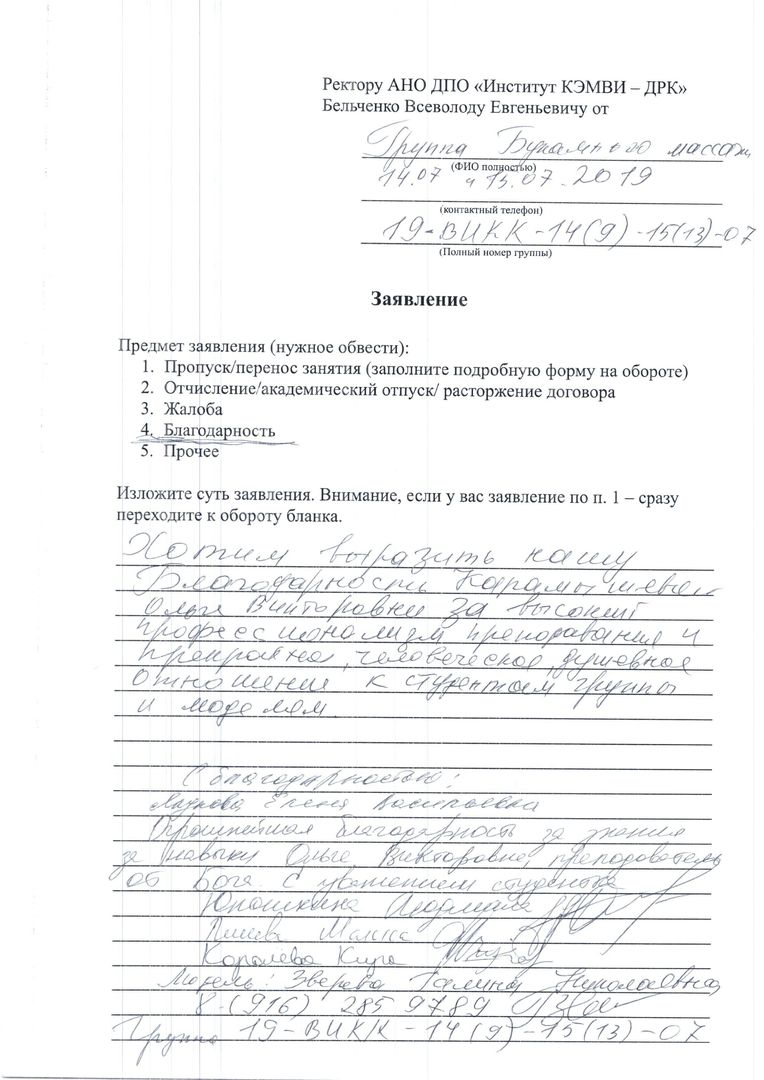 Ректору АНО ДПО «Институт КЭМВИ – ДРК»
Бельченко Всеволоду Евгеньевичу от
Группа Буккального массажа
(ФИО полностью)
14.07 и 15.07.2019
(контактный телефон)
19-ВИКК-14(9)-15(13)-07
(Полный номер группы)
Заявление
Предмет заявления (нужное обвести):
1. Пропуск/перенос занятия (заполните подробную форму на обороте)
2. Отчисление/академический отпуск/ расторжение договора
3. Жалоба
4. Благодарность
5. Прочее
Изложите суть заявления. Внимание, если у вас заявление по п. 1 – сразу
переходите к обороту бланка.
Хотим выразить нашу
Благодарность Карамышевой
Ольге Викторовне за высокий
профессионализм преподавания и
прекрасное, человеческое, душевное
отношение к студентам группы
и моделям.
С благодарностью:
Елена Васильевна
Огромнейшая благодарность за знания
за навыки Ольге Викторовне, преподаватель
от Бога. С уважением студентка
Юношкина Людмила
Королёва Кира
Модель: Зверева Галина Николаевна
8-(916) 285 9789
Группа 19-ВИКК-14(9)-15(13)-07